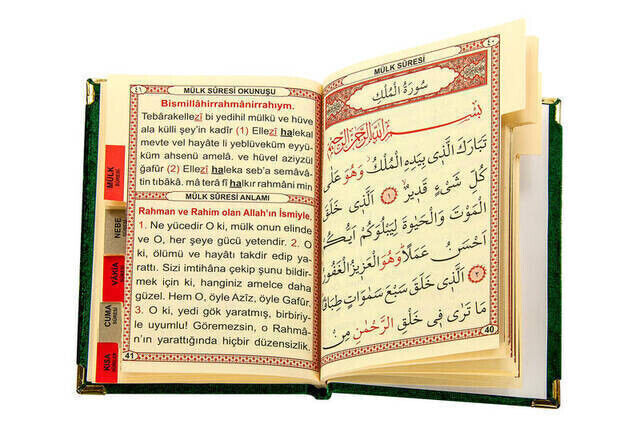 ٤١
MÜLK SÛRESİ OKUNUŞU
Bismillâhirrahmânirrahıym.
Tebârakellezî bi yedihil mülkü ve hüve
ala külli şey'in kadîr (1) Ellezî halekal
mevte vel hayâte li yeblüveküm eyyü-
küm ahsenü amelâ. ve hüvel aziyzül
ğafûr (2) Ellezî haleka seb'a semâvâ-
tin tıbâkâ. mâ terâ fî halkır rahmâni min
MÜLK SÛRESİ ANLAMI
Rahman ve Rahim olan Allah'ın İsmiyle,
1. Ne yücedir O ki, mülk onun elinde
ve O, her şeye gücü yetendir. 2. O
ki, ölümü ve hayatı takdir edip ya-
rattı. Sizi imtihâna çekip şunu bildir-
mek için ki, hanginiz amelce daha
güzel. Hem O, öyle Azîz, öyle Gafûr.
3. O ki, yedi gök yaratmış, birbiriy-
le uyumlu! Göremezsin, o Rahmâ-
n'ın yarattığında hiçbir düzensizlik.
41
MÜLK
SÛRESİ
NEBE
SÛRESİ
VAKIA
SÛRESİ
CUMA
SÛRESİ
KISA
٤٠
MÜLK SÛRESİ
سُورَةُ الْمُلْكِ
بِسْمِ اللَّهِ الرَّحْمَنِ الرَّحِيمِ
تَبَارَكَ الَّذِي بِيَدِهِ الْمُلْكُ وَهُوَ عَلَى
كُلِّ شَيْءٍ قَدِيرٌ ﴿١﴾ الَّذِي خَلَقَ
الْمَوْتَ وَالْحَيٰوةَ لِيَبْلُوَكُمْ اَيُّكُمْ
اَحْسَنُ عَمَلًا وَهُوَ الْعَزِيزُ الْغَفُورُ
﴿٢﴾ الَّذِي خَلَقَ سَبْعَ سَمٰوَاتٍ طِبَاقًا
مَا تَرَى فِي خَلْقِ الرَّحْمٰنِ مِنْ
40